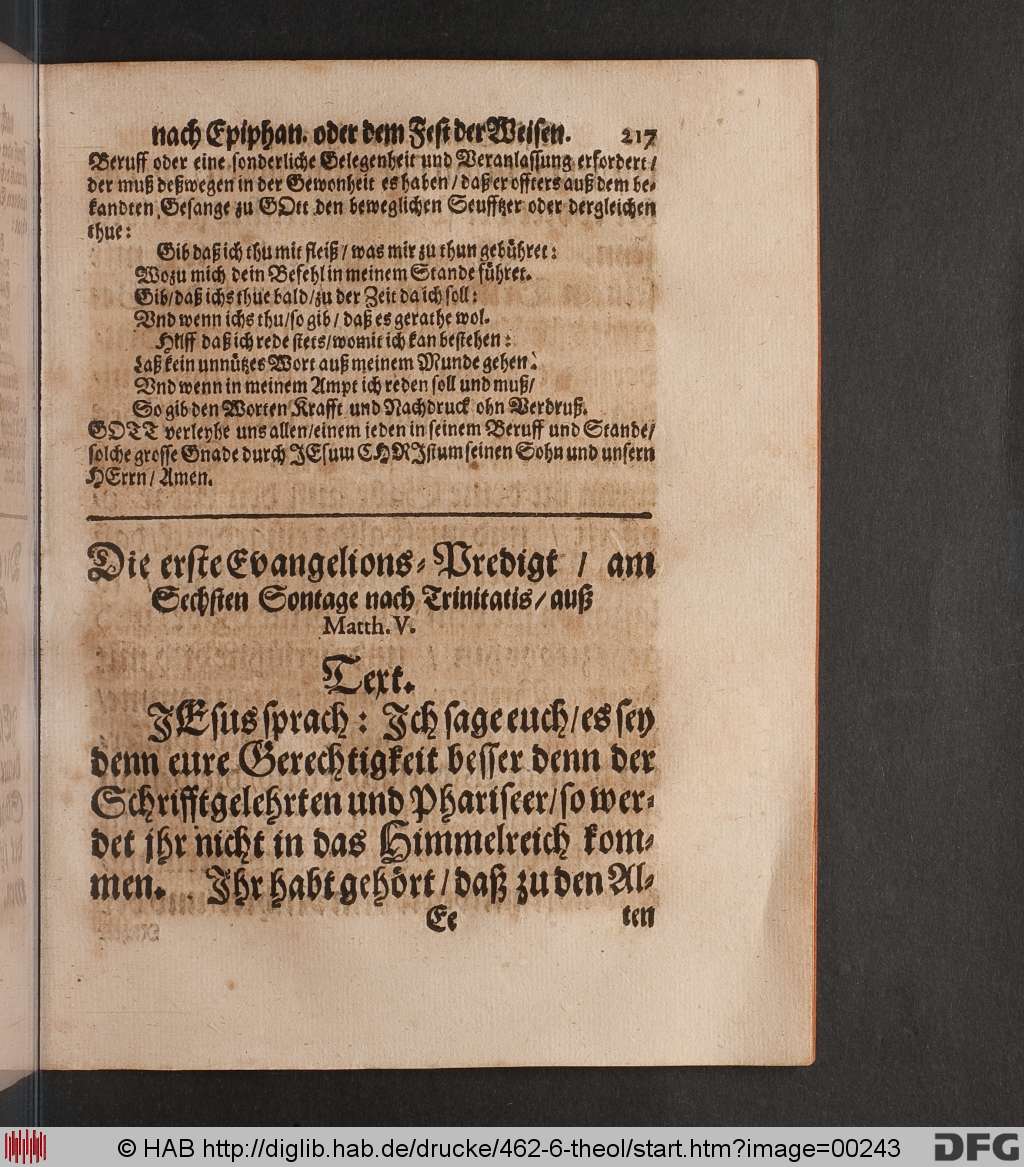 nach Epiphan. oder dem Fest der Weisen. 217
Beruff oder eine sonderliche Gelegenheit und Veranlassung erfordert /
der muß deßwegen in der Gewonheit es haben / daß er offters auß dem be-
kandten Gesange zu GOtt den beweglichen Seufftzer oder dergleichen
thue:
Gib daß ich thu mit fleiß / was mir zu thun gebühret:
Wozu mich dein Befehl in meinem Stande führet.
Gib / daß ichs thue bald / zu der Zeit da ich soll:
Vnd wenn ichs thu / so gib / daß es gerathe wol.
Hilff daß ich rede stets / womit ich kan bestehen:
Laß kein unnützes Wort auß meinem Munde gehen:
Vnd wenn in meinem Ampt ich reden soll und muß /
So gib den Worten Krafft und Nachdruck ohn Verdruß.
GOTT verleyhe uns allen / einem jeden in seinem Beruff und Stande /
solche grosse Gnade durch JEsum CHRIstum seinen Sohn und unsern
HErrn / Amen.
Die erste Evangelions-Predigt / am
Sechsten Sontage nach Trinitatis / auß
Matth. V.
Text.
JEsus sprach: Ich sage euch / es sey
denn eure Gerechtigkeit besser denn der
Schrifftgelehrten und Phariseer / so wer-
det jhr nicht in das Himmelreich kom-
men. Ihr habt gehört / daß zu den Al-
Ee ten
© HAB http://diglib.hab.de/drucke/462-6-theol/start.htm?image=00243 DFG